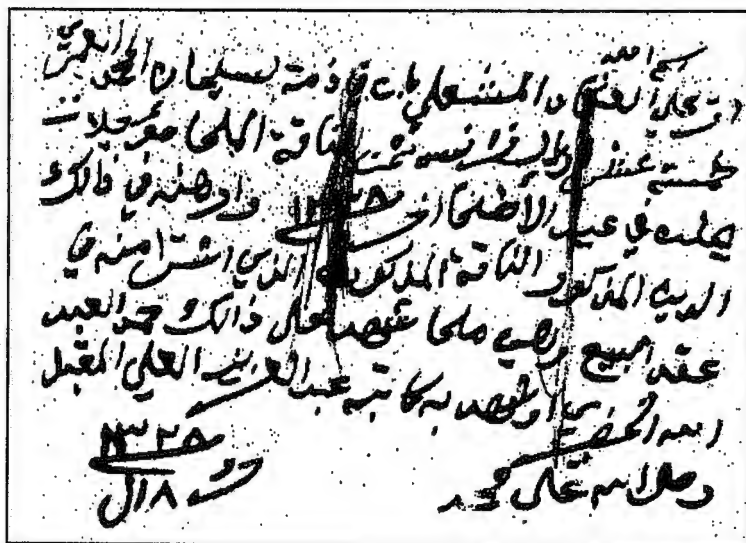 بسم الله
اقر علي العنقد المشعلي بان في ذمة لسليمان المحمد العمري
خمسة عشر ريال فرانسه ثمن الناقة الملحا مؤجلات
يحلن في عيد الأضحى ١٣٢٨ وارهنه في ذالك
الدين المذكور الناقة المذكورة الذي اشترا منه في
عقد المبيع وهي ملحا شهد على ذالك حمد العبد
الله الخضيري وشهد به كاتبه عبد العزيز العلي المقبل
وصلى الله على محمد
١٣٢٨
١٨ ل